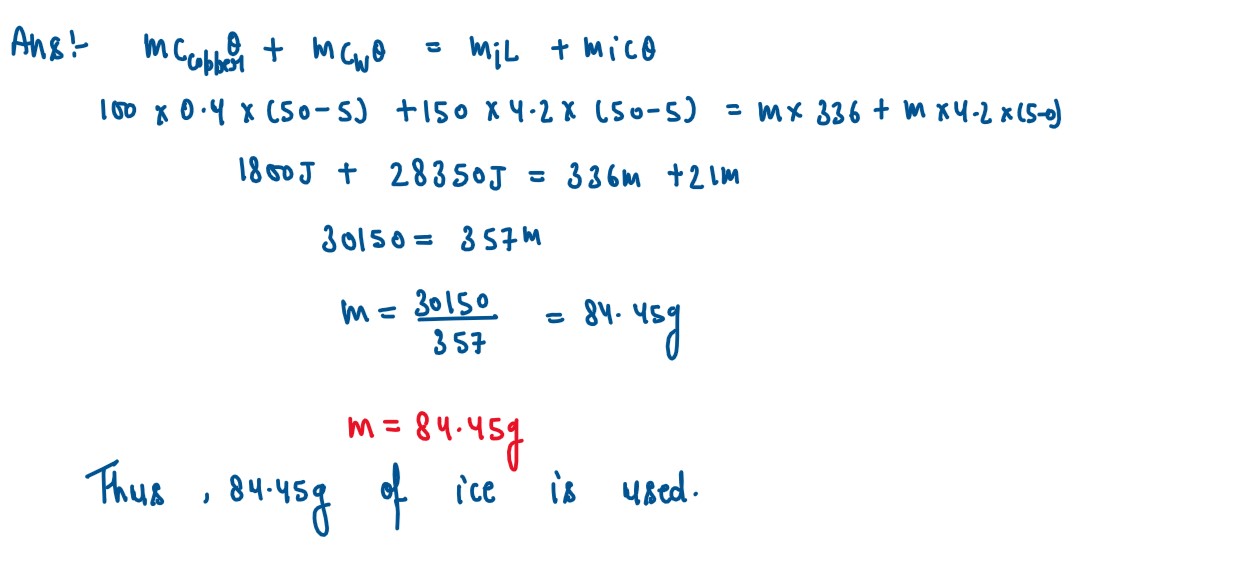 Ans:- mC_copper θ + mC_wθ = m_iL + micθ
100 x 0.4 x (50-5) + 150 x 4.2 x (50-5) = m x 336 + m x 4.2 x (5-0)
1800J + 28350J = 336m + 21m
30150 = 357m
m = 30150/357 = 84.45g
m = 84.45g
Thus, 84.45g of ice is used.